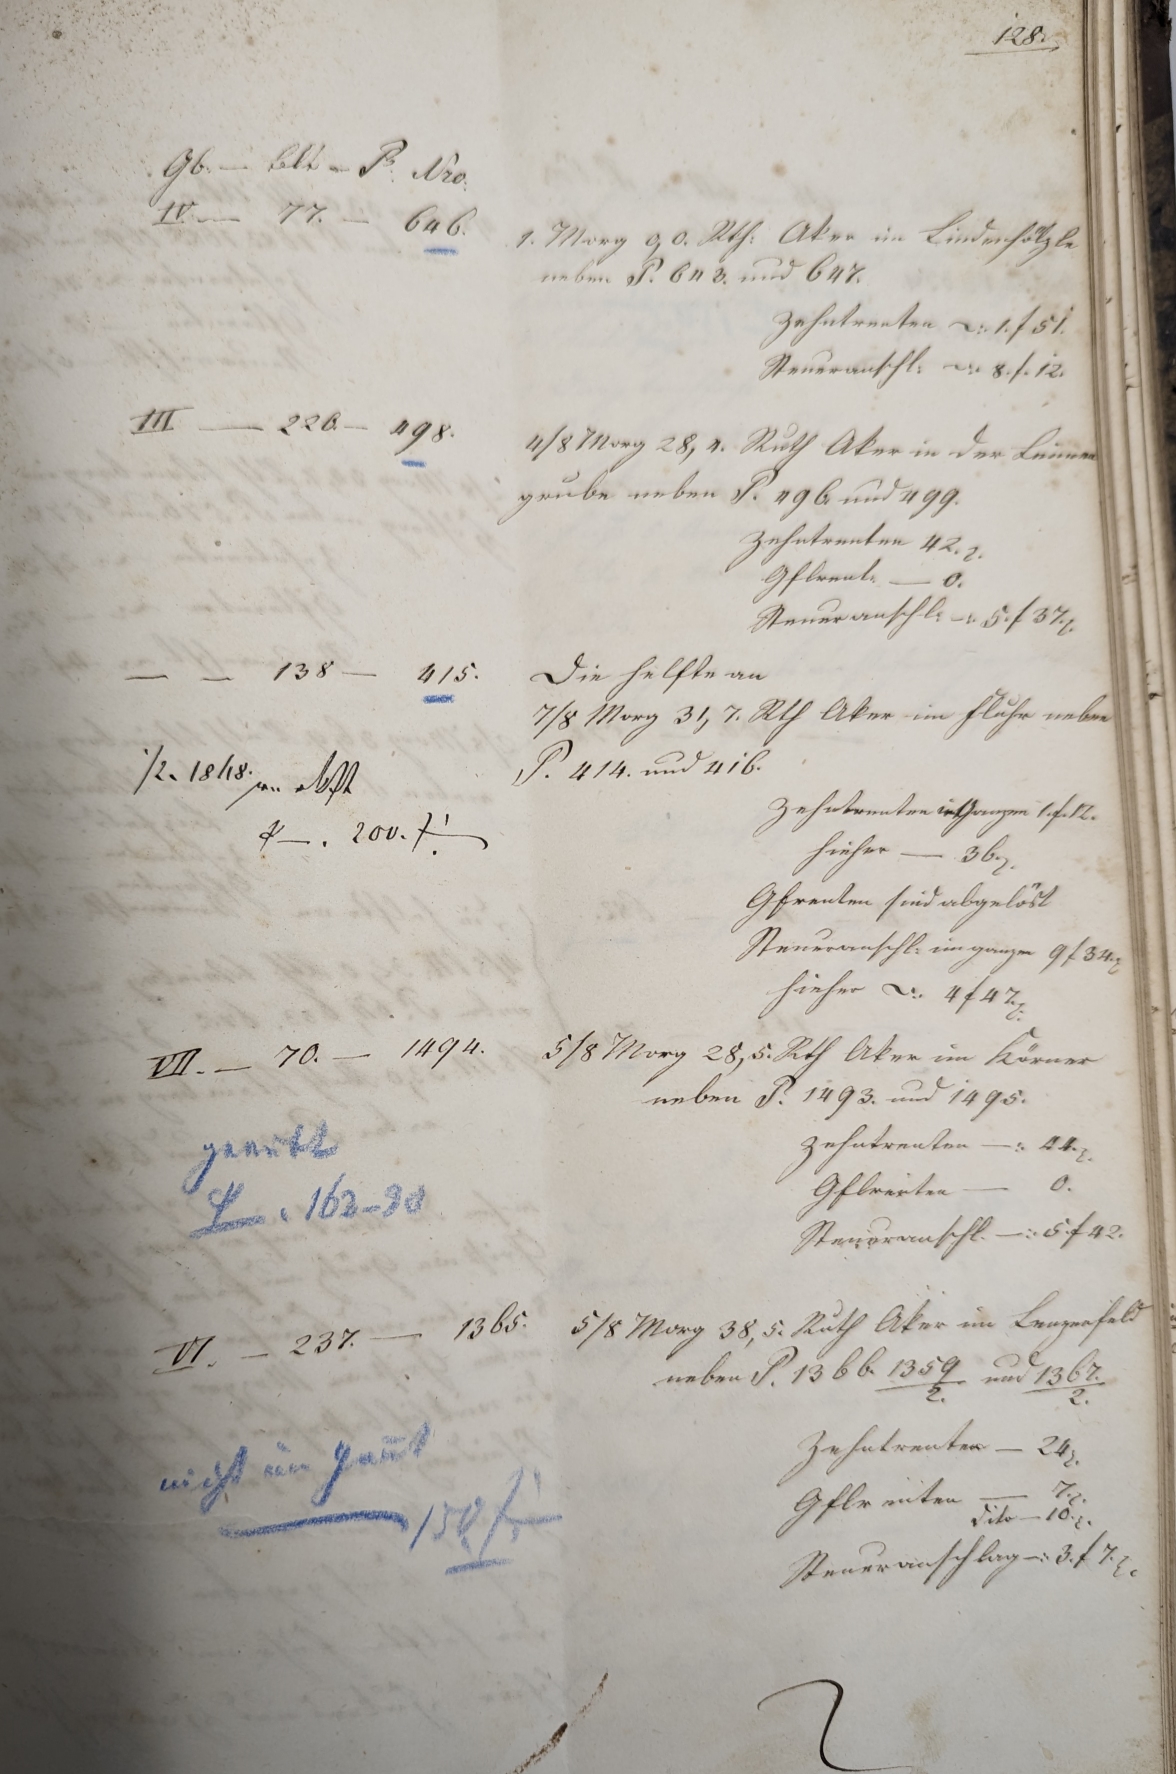 128.
Gb. — Blt — P. Nro.
IV. — 77. — 646.
1. Morg 9,0. Rth: Aker im Lindenhölzle
neben P. 643. und 647.
Zehntrenten —: 1. f 51.
Steueranschl: —: 8. f. 12.
III — 226. — 498.
4/8 Morg 28,4. Ruth Aker in der Leimen
grube neben P. 496 und 499.
Zehntrenten 42.
Gflrent. — 0.
Steueranschl: —: 5. f 37.
— — 138 — 415.
Die helfte an
7/8 Morg 31,7. Rth Aker im Fluhr neben
P. 414. und 416.
1/2. 1848.
200. f
Zehntrenten im Ganzen 1. f. 12.
hieher — 36.
Gfrenten sind abgelöst
Steueranschl: im ganzen 9 f 34.
hieher —: 4 f 47.
VII. — 70. — 1494.
5/8 Morg 28,5. Rth Aker im Körner
neben P. 1493. und 1495.
Zehntrenten —: 44.
Gflrenten — 0.
Steueranschl. —: 5. f 42.
162-90
VI. — 237. — 1365.
5/8 Morg 38,5. Ruth Aker im Lenzenfeld
neben P. 1366. 1359/2. und 1367./2.
Zehntrenten — 24
Gflrenten — 7.
dito — 10.
Steueranschlag —: 3. f 7.
nicht im gant
150 f